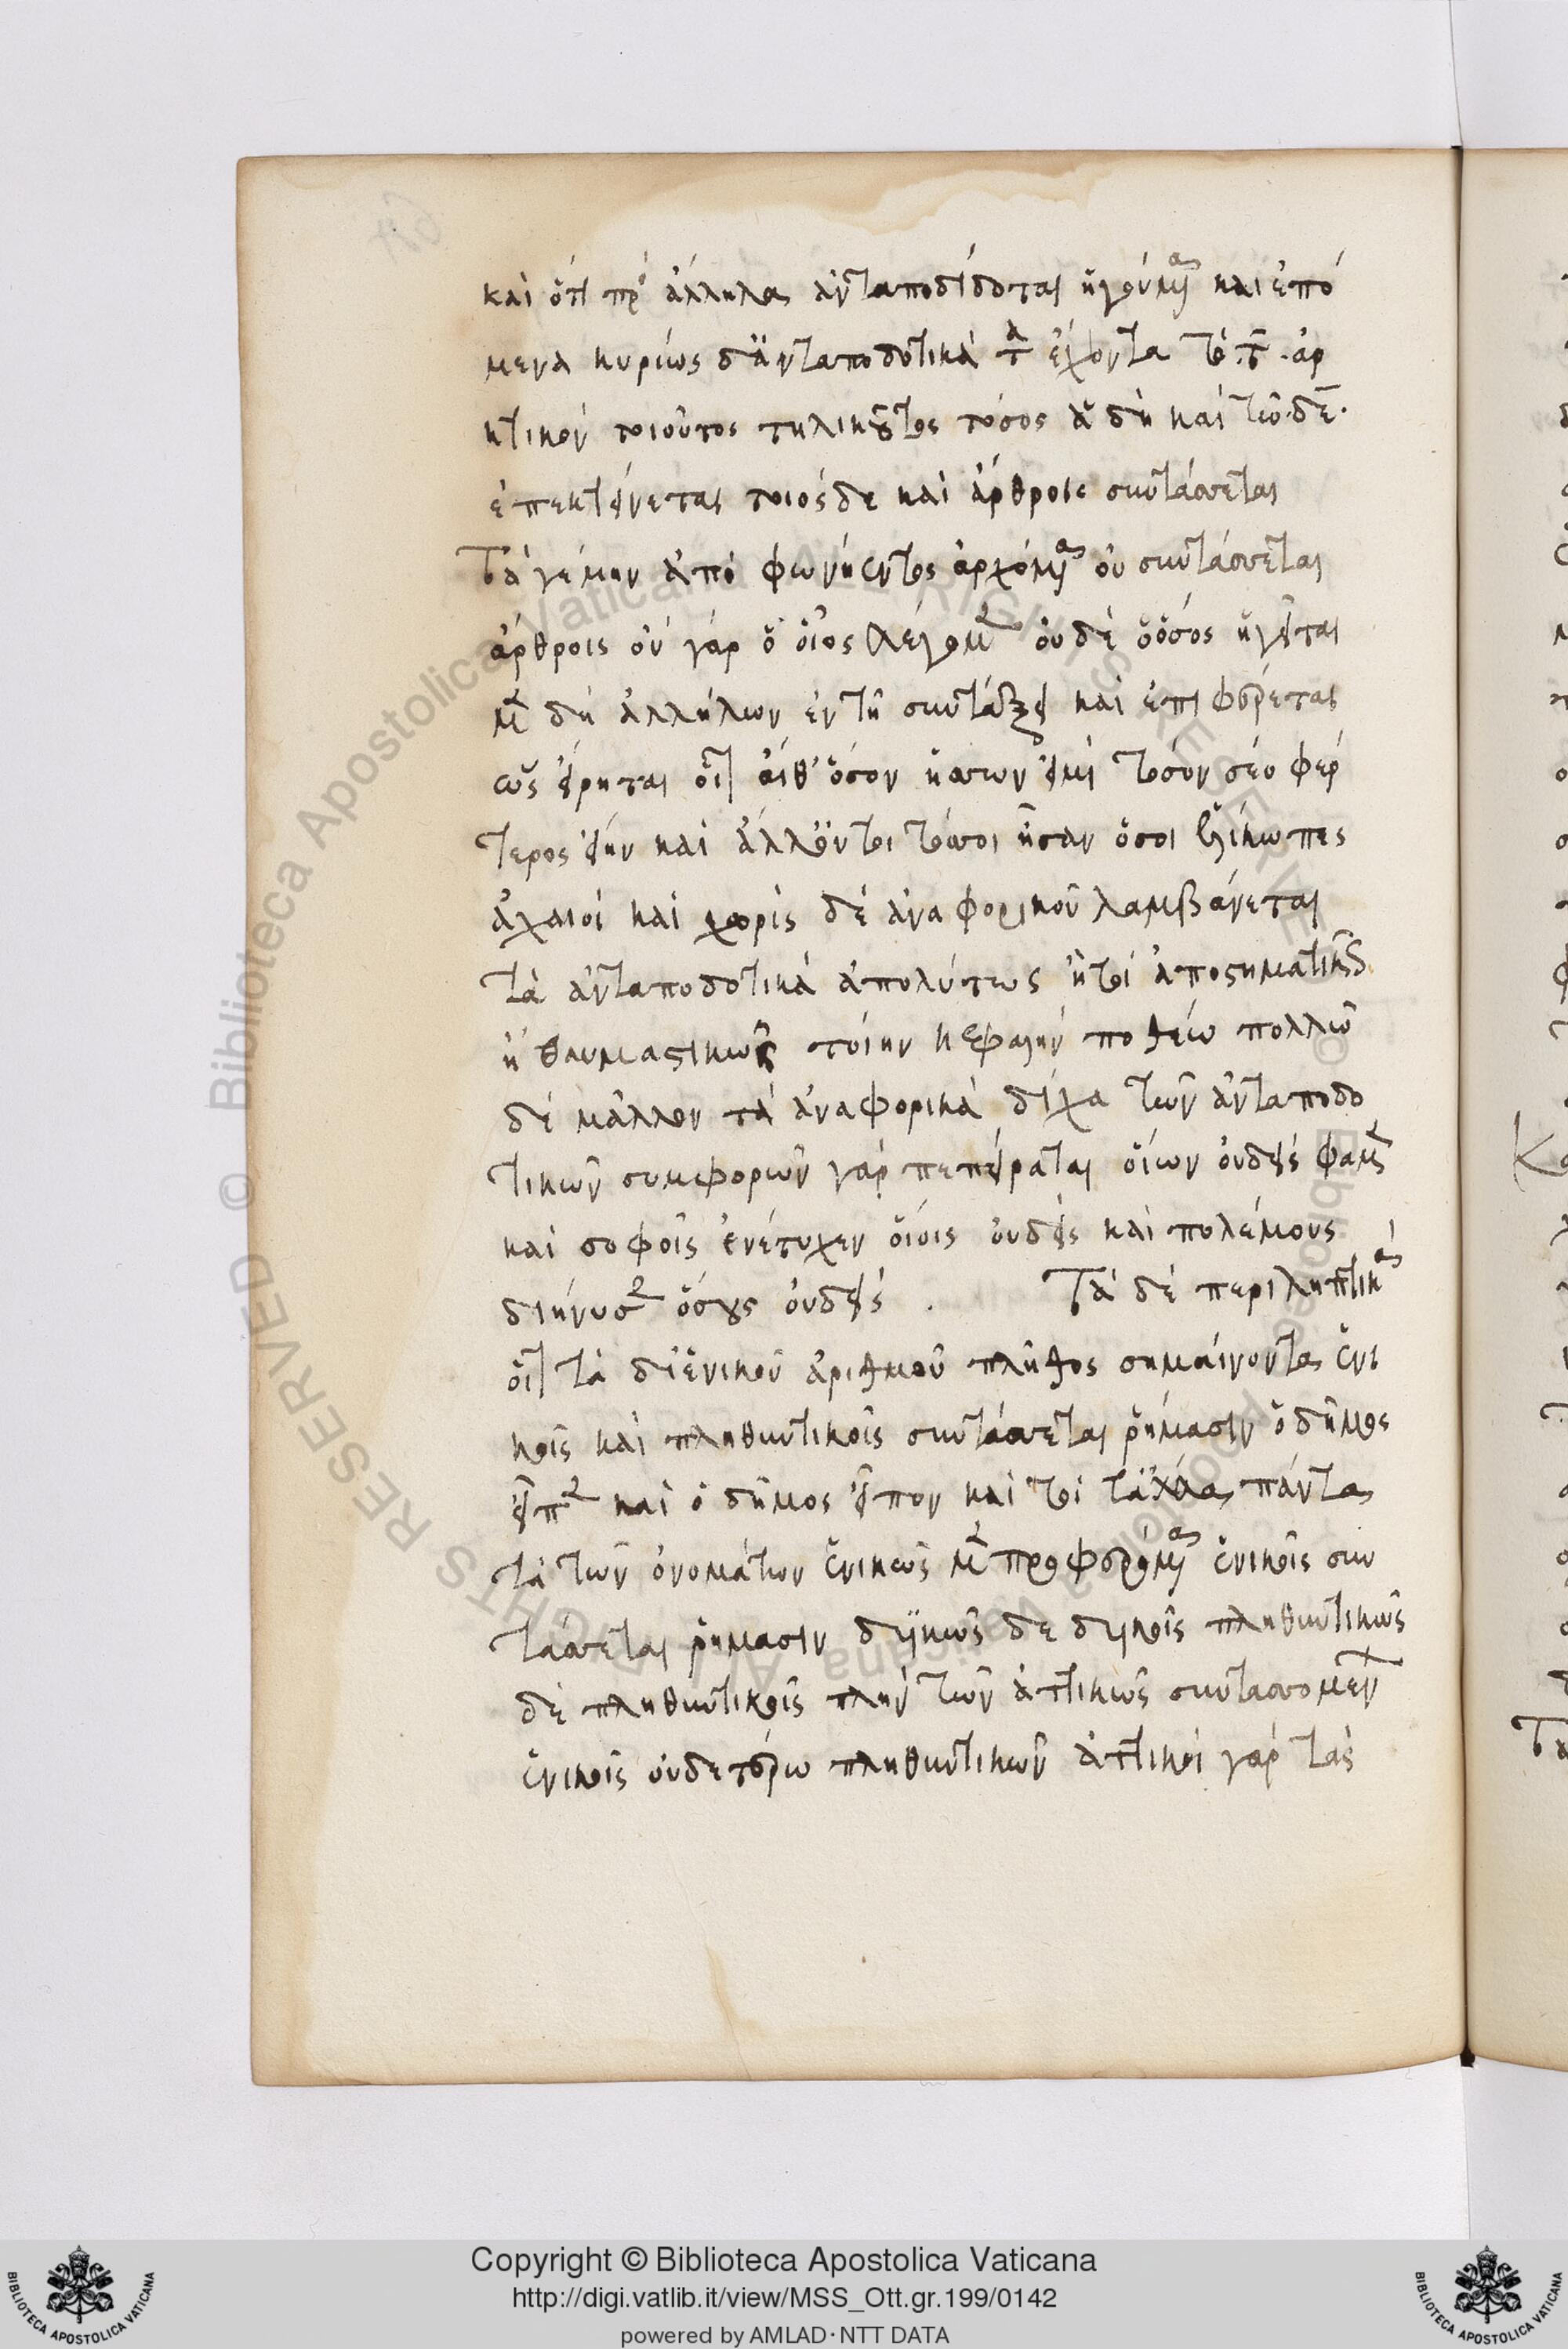 καὶ ὅτι πρὸς ἄλληλα ἀνταποδίδοται ἡγούμενα καὶ ἑπό
μενα κυρίως δ' ἀνταποδοτικὰ τὰ ἔχοντα τὸ .τ. ἀρ
κτικὸν τοιοῦτος τηλικοῦτος τόσος ἃ δὴ καὶ τῶ .δε.
ἐπεκτείνεται τοιόσδε καὶ ἄρθροις συντάσσεται
Τά γε μὴν ἀπὸ φωνήεντος ἀρχόμενα οὐ συντάσσεται
ἄρθροις οὐ γὰρ ὁ οἷος λέγομεν οὐδὲ ὁ ὅσος ἡγεῖται
μὲν δὴ ἀλλήλων ἐν τῆ συντάξει καὶ ἐπιφέρεται
ὡς εἴρηται οἷον αἴθ' ὅσον ἥσσων εἰμὶ τόσον σέο φέρ
τερος εἴην καὶ ἀλλ' ὄντοι τόσοι ἦσαν ὅσοι ἑλίκωπες
ἀχαιοί καὶ χωρὶς δὲ ἀναφορικοῦ λαμβάνεται
τὰ ἀνταποδοτικὰ ἀπολύτως ἤτοι ἀποστηματικῶς
ἢ θαυμαστικῶς τοίην κεφαλὴν ποθέω πολλῶ
δὲ μᾶλλον τὰ ἀναφορικὰ δίχα τῶν ἀνταποδο
τικῶν συμφορῶν γὰρ πεπείραται οἵων οὐδεὶς φαμὲν
καὶ σοφοῖς ἐνέτυχεν οἵοις οὐδεὶς καὶ πολέμους
διήνυσεν ὅσους οὐδείς . Τὰ δὲ περιληπτικὰ
οἷον τὰ δι' ἑνικοῦ ἀριθμοῦ πλῆθος σημαίνοντα ἑνι
κοῖς καὶ πληθυντικοῖς συντάσσεται ῥήμασιν ὁ δῆμος
εἶπεν καὶ ὁ δῆμος εἶπον καὶ τοι πάντα
τὰ τῶν ὀνομάτων ἑνικῶς μὲν προφερόμενα ἑνικοῖς συν
τάσσεται ῥήμασιν δυϊκῶς δε δυικοῖς πληθυντικῶς
δὲ πληθυντικοῖς πλὴν τῶν ἀττικῶς συντασσομένων
ἑνικοῖς οὐδετέρω πληθυντικῶν ἀττικοὶ γὰρ τὰς
Copyright © Biblioteca Apostolica Vaticana
http://digi.vatlib.it/view/MSS_Ott.gr.199/0142
powered by AMLAD·NTT DATA